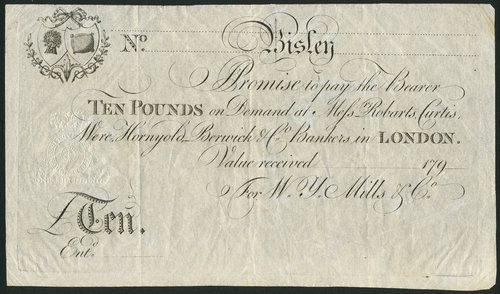 No. Bisley
I Promise to pay the Bearer
TEN POUNDS on Demand at Mess.rs Robarts, Curtis,
Were, Hornyold, Berwick & Co. Bankers in LONDON.
Value received 179
For W. Y. Mills & Co.
£Ten.
Ent.d